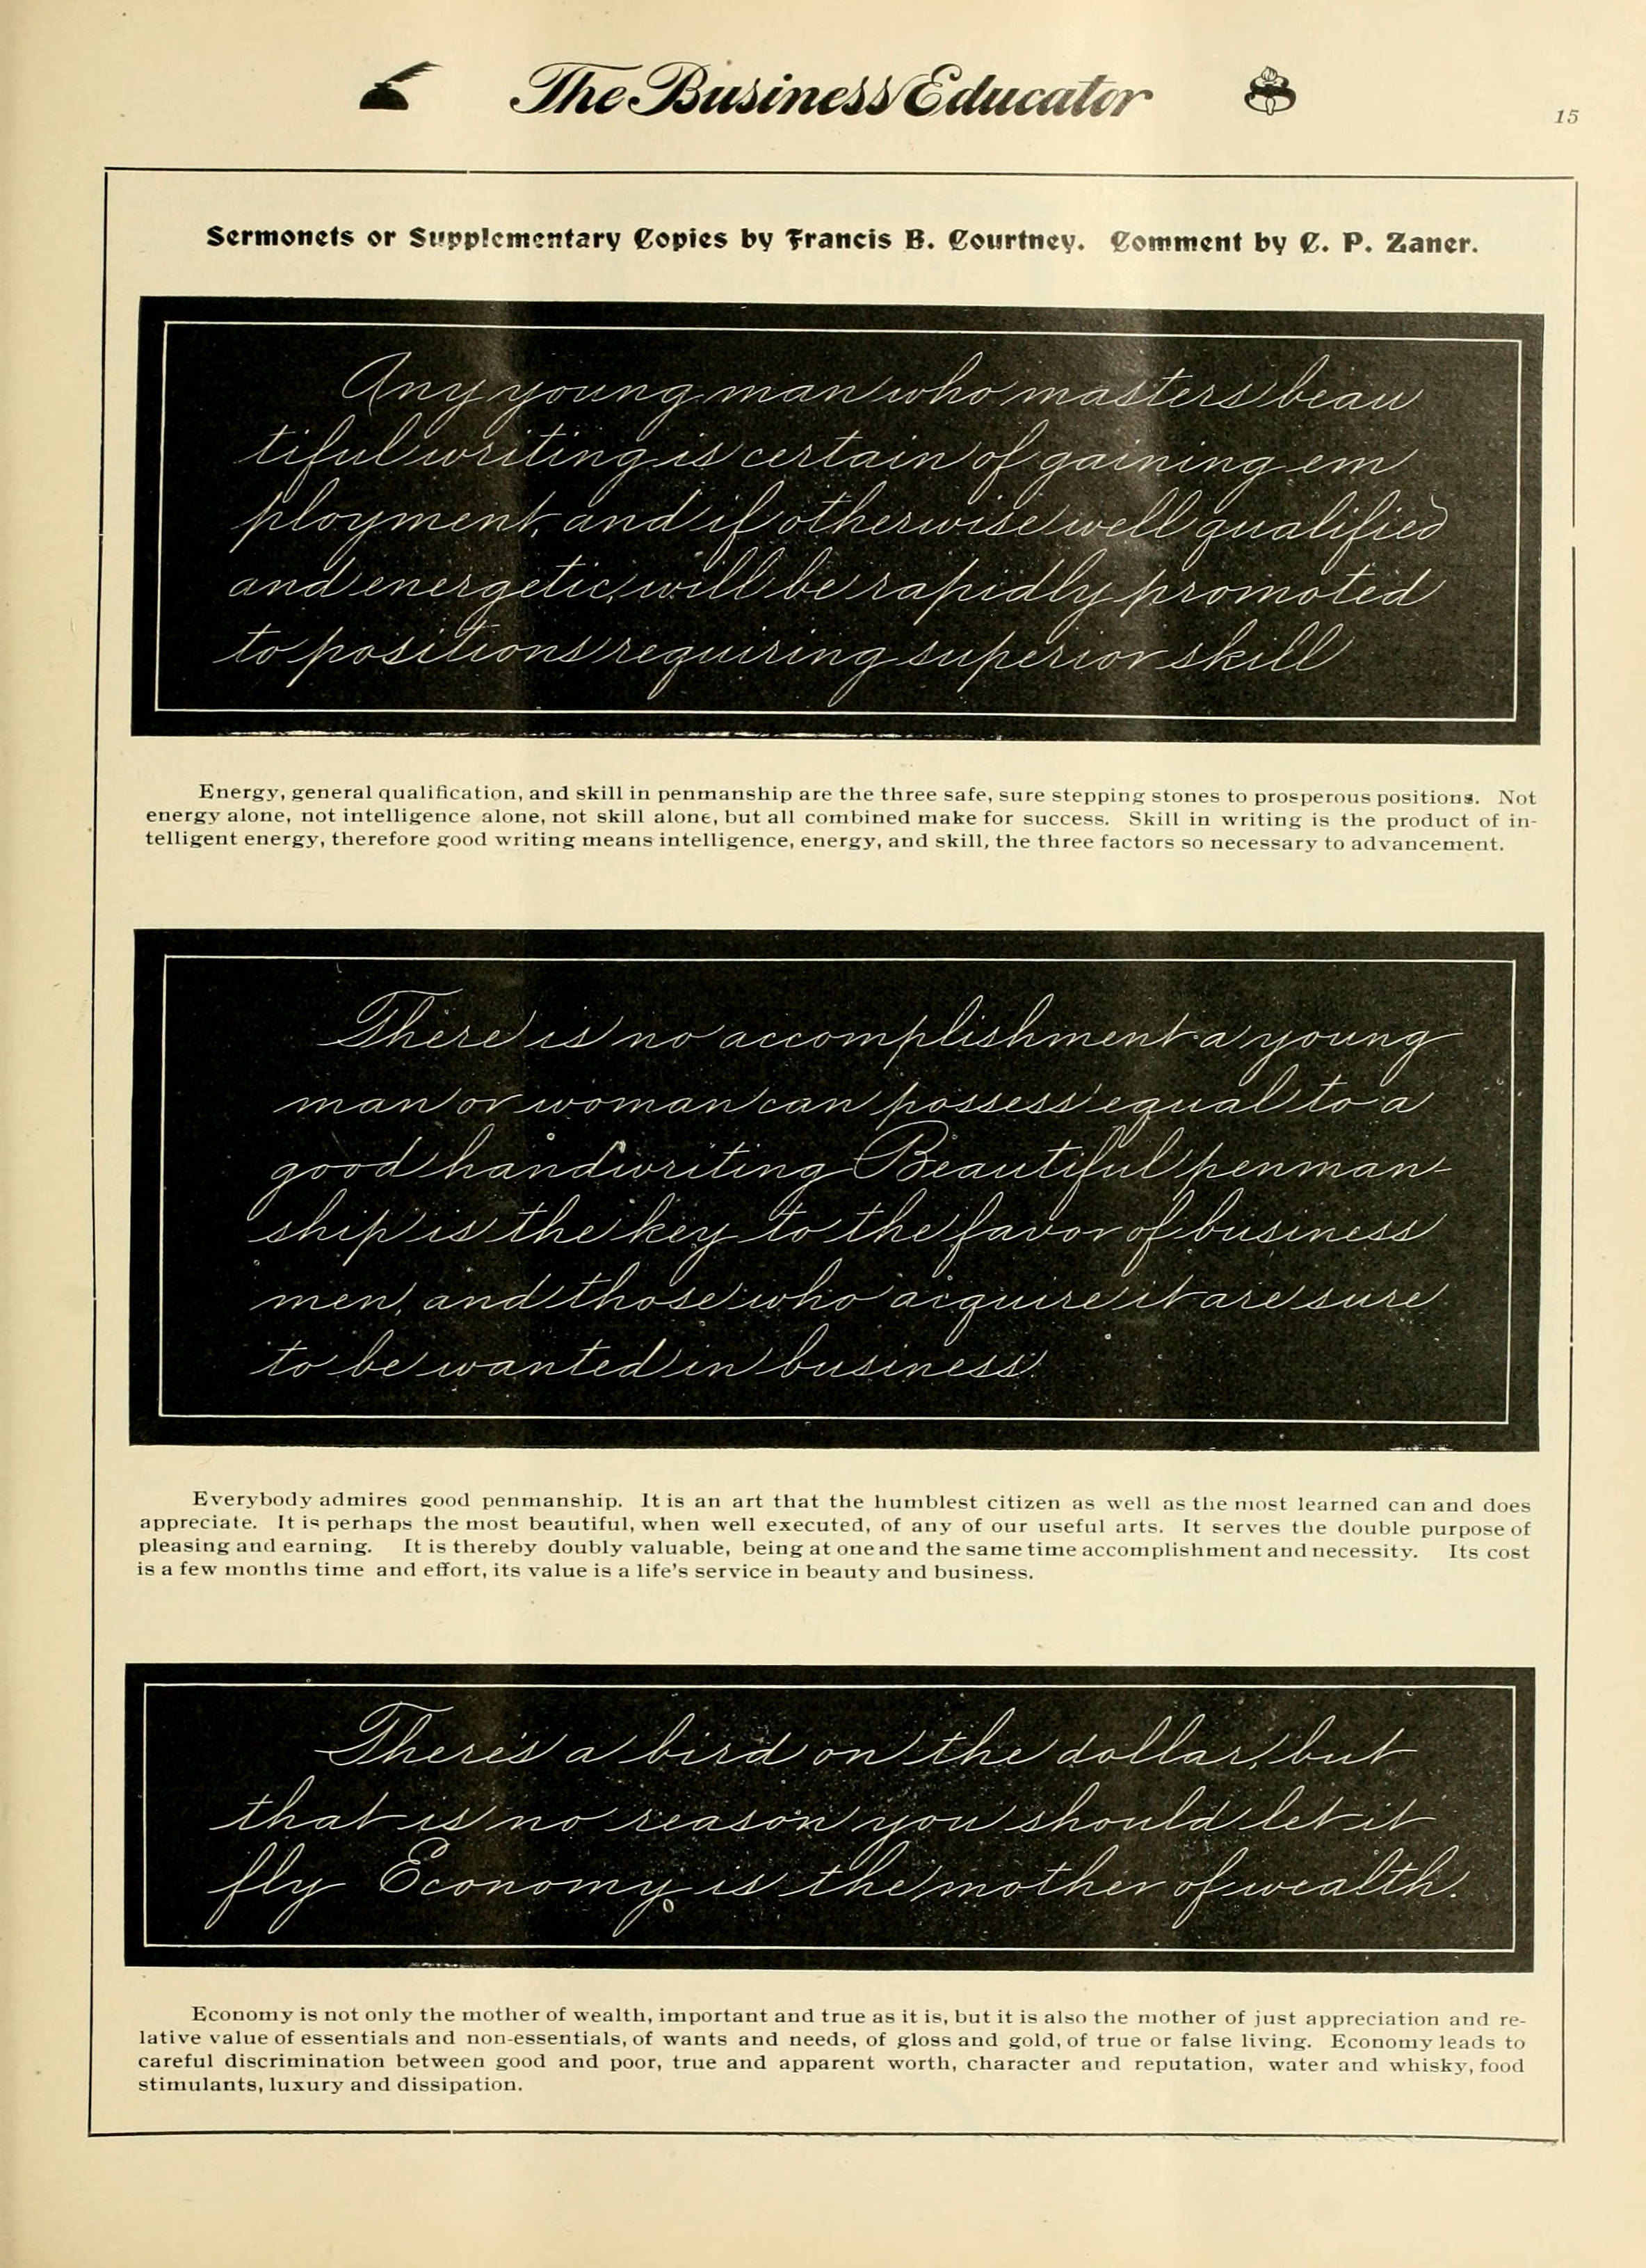 The Business Educator
15
Sermonets or Supplementary Copies by Francis B. Courtney. Comment by C. P. Zaner.
Any young man who masters beau
tiful writing is certain of gaining em
ployment, and if otherwise well qualified
and energetic, will be rapidly promoted
to positions requiring superior skill
Energy, general qualification, and skill in penmanship are the three safe, sure stepping stones to prosperous positions. Not
energy alone, not intelligence alone, not skill alone, but all combined make for success. Skill in writing is the product of in-
telligent energy, therefore good writing means intelligence, energy, and skill, the three factors so necessary to advancement.
There is no accomplishment a young
man or woman can possess equal to a
good handwriting Beautiful penman-
ship is the key to the favor of business
men, and those who acquire it are sure
to be wanted in business.
Everybody admires good penmanship. It is an art that the humblest citizen as well as the most learned can and does
appreciate. It is perhaps the most beautiful, when well executed, of any of our useful arts. It serves the double purpose of
pleasing and earning. It is thereby doubly valuable, being at one and the same time accomplishment and necessity. Its cost
is a few months time and effort, its value is a life's service in beauty and business.
There's a bird on the dollar, but
that is no reason you should let it
fly Economy is the mother of wealth.
Economy is not only the mother of wealth, important and true as it is, but it is also the mother of just appreciation and re-
lative value of essentials and non-essentials, of wants and needs, of gloss and gold, of true or false living. Economy leads to
careful discrimination between good and poor, true and apparent worth, character and reputation, water and whisky, food
stimulants, luxury and dissipation.